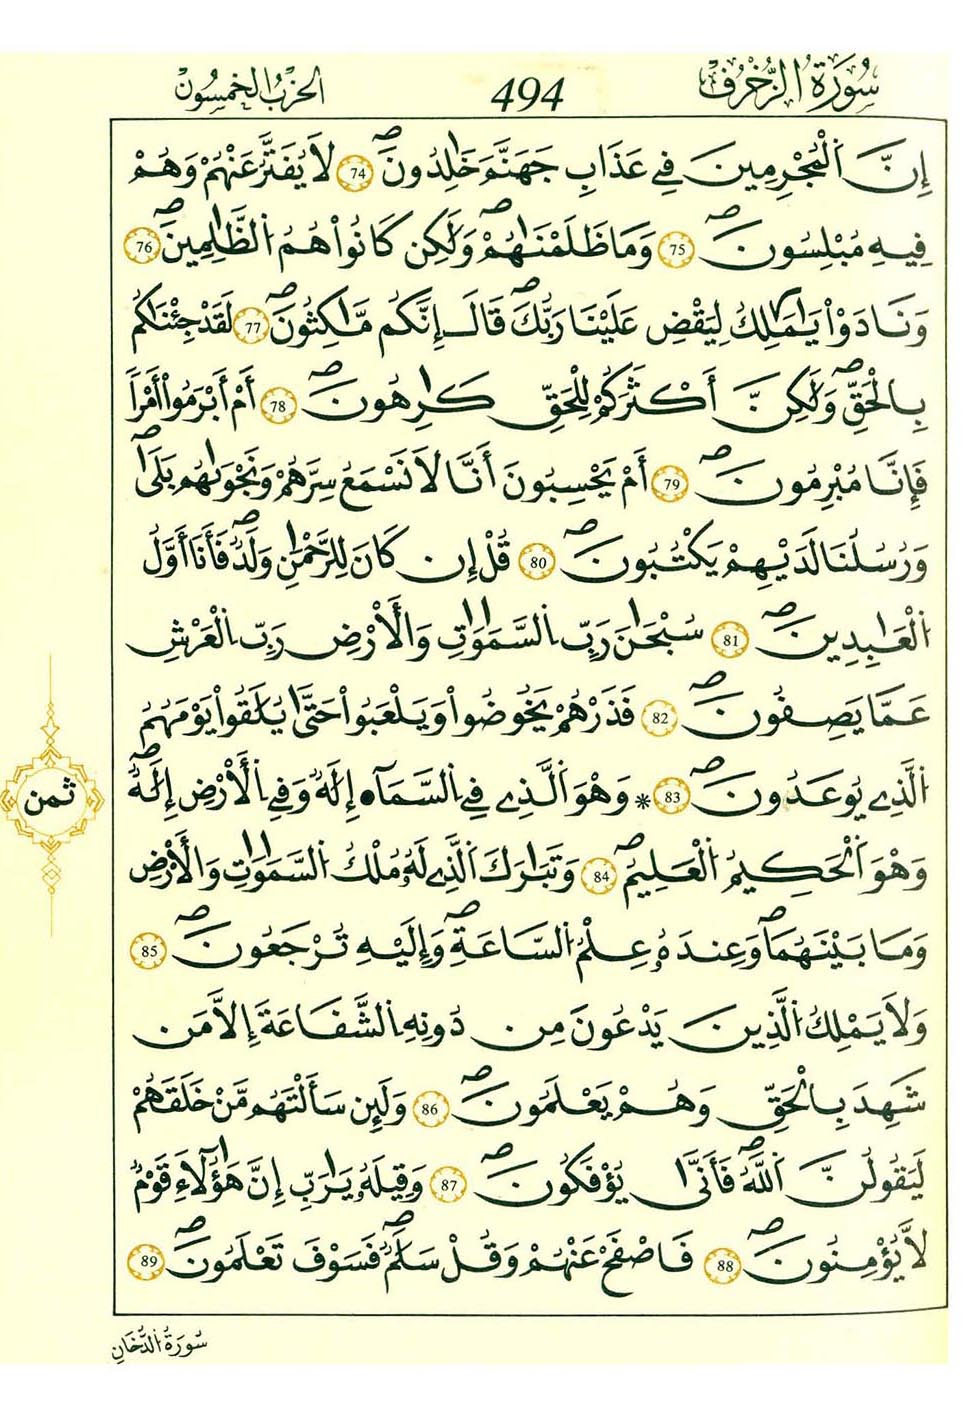 سُورَةُ الزُّخْرُفِ
494
الحزب الخمسون
إِنَّ اَ۬لْمُجْرِمِينَ فِے عَذَابِ جَهَنَّمَ خَٰلِدُونَۖ 74 لَا يُفَتَّرُ عَنْهُمْ وَهُمْ
فِيهِ مُبْلِسُونَۖ 75 وَمَا ظَلَمْنَٰهُمْۖ وَلَٰكِن كَانُواْ هُمُ اُ۬لظَّٰلِمِينَۖ 76
وَنَادَوْاْ يَٰمَٰلِكُ لِيَقْضِ عَلَيْنَا رَبُّكَۖ قَالَ إِنَّكُم مَّٰكِثُونَۖ 77 لَقَدْ جِئْنَٰكُم
بِالْحَقِّۖ وَلَٰكِنَّ أَكْثَرَكُمْ لِلْحَقِّ كَٰرِهُونَۖ 78 أَمْ أَبْرَمُواْ أَمْراٗ
فَإِنَّا مُبْرِمُونَۖ 79 أَمْ يَحْسِبُونَ أَنَّا لَا نَسْمَعُ سِرَّهُمْ وَنَجْوَىٰهُم بَلَىٰۖ
وَرُسُلُنَا لَدَيْهِمْ يَكْتُبُونَۖ 80 قُلْ إِن كَانَ لِلرَّحْمَٰنِ وَلَدٞۖ فَأَنَا أَوَّلُ
اُ۬لْعَٰبِدِينَۖ 81 سُبْحَٰنَ رَبِّ اِ۬لسَّمَٰوَٰتِ وَالْأَرْضِ رَبِّ اِ۬لْعَرْشِ
عَمَّا يَصِفُونَۖ 82 فَذَرْهُمْ يَخُوضُواْ وَيَلْعَبُواْ حَتَّىٰ يُلَٰقُواْ يَوْمَهُمُ
اُ۬لَّذِے يُوعَدُونَۖ 83 * وَهُوَ اَ۬لَّذِے فِے اِ۬لسَّمَآءِ اِلَٰهٞ وَفِے اِ۬لْأَرْضِ إِلَٰهٞۖ
وَهُوَ اَ۬لْحَكِيمُ اُ۬لْعَلِيمُۖ 84 وَتَبَٰرَكَ اَ۬لَّذِے لَهُۥ مُلْكُ اُ۬لسَّمَٰوَٰتِ وَالْأَرْضِ
وَمَا بَيْنَهُمَاۖ وَعِندَهُۥ عِلْمُ اُ۬لسَّاعَةِۖ وَإِلَيْهِ تُرْجَعُونَۖ 85
وَلَا يَمْلِكُ اُ۬لَّذِينَ يَدْعُونَ مِن دُونِهِ اِ۬لشَّفَٰعَةَ إِلَّا مَن
شَهِدَ بِالْحَقِّ وَهُمْ يَعْلَمُونَۖ 86 وَلَئِن سَأَلْتَهُم مَّنْ خَلَقَهُمْ
لَيَقُولُنَّ اَ۬للَّهُۖ فَأَنَّىٰ يُؤْفَكُونَۖ 87 وَقِيلَهُۥ يَٰرَبِّ إِنَّ هَٰؤُلَآءِ قَوْمٞ
لَّا يُؤْمِنُونَۖ 88 فَاصْفَحْ عَنْهُمْ وَقُلْ سَلَٰمٞۖ فَسَوْفَ تَعْلَمُونَۖ 89
ثمن
سُورَةُ الدُّخَانِ